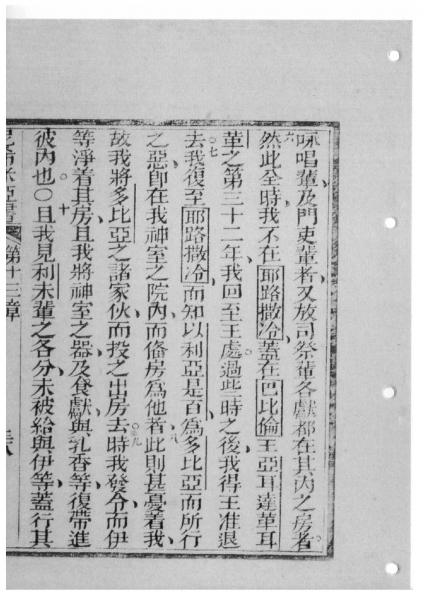 咏唱輩及門吏輩者又放司祭輩各獻都在其內之房者。
六然此全時我不在耶路撒冷蓋在巴比倫王亞耳達革耳
革之第三十二年我回至王處。過些時之後我得王准退
去。七我復至耶路撒冷而知以利亞是百為多比亞而所行
之惡即在我神室之院內而俻房為他者。八此則甚憂着我
故我將多比亞之諸家伙而投之出房去。九時我發令而伊
等淨着其房且我將神室之器及食獻與乳香等復帶進
彼內也。○十且我見利未輩之各分未被給與伊等蓋行其
第十三章